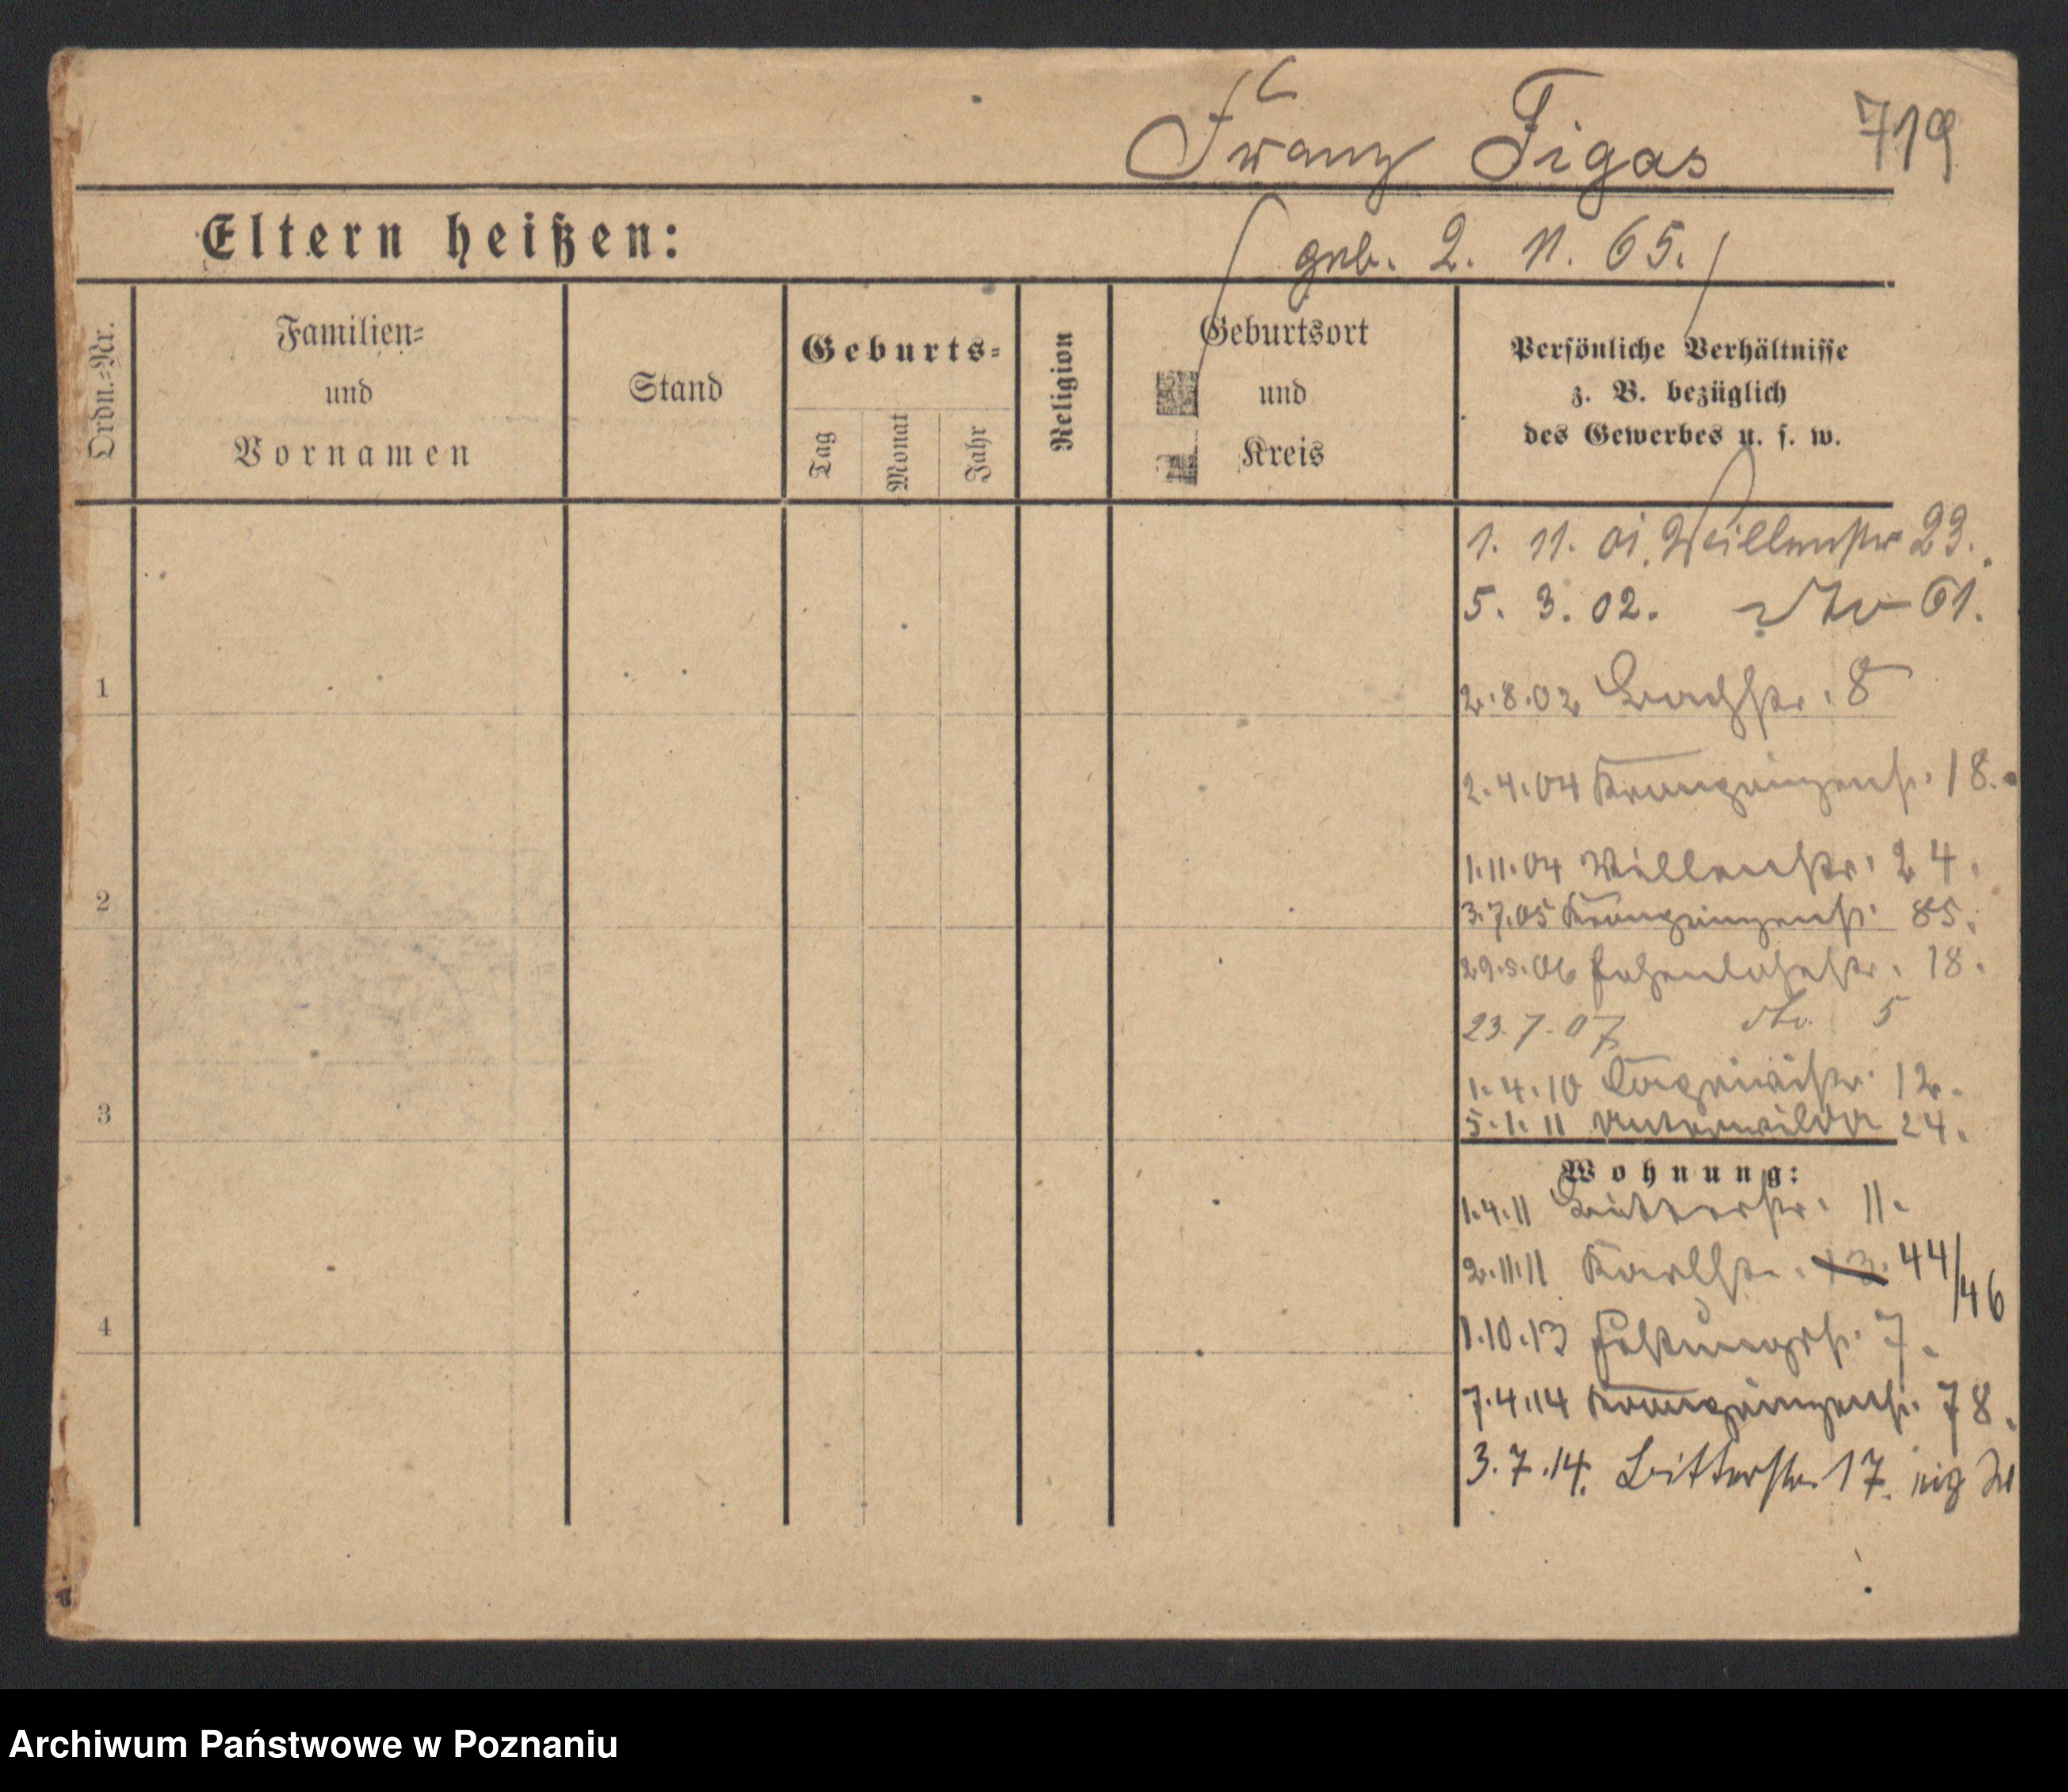 Franz Figas 719
Eltern heißen: (geb. 2. 11. 65.)
Ordn.-Nr.
Familien-
und
Vornamen
Stand
Geburts-
Tag
Monat
Jahr
Religion
Geburtsort
und
Kreis
Persönliche Verhältnisse
z. B. bezüglich
des Gewerbes u. s. w.
1. 11. 01. Weillenstr 23.
5. 3. 02. dto 61.
1
2.8.02 Bachstr. 8
2.4.04 Kronprinzenstr. 18.
1.11.04 Willenstr. 24.
2
3.7.05 Kronprinzenstr. 85.
29.5.06 Hohenlohestr. 18.
23.7.07 dto. 5
1.4.10 12.
3
5.1.11 Unterwilda 24.
Wohnung:
1.4.11 Bitterstr. 11.
2.11.11 Karlstr. 44/46
4
1.10.13 Festungsstr. 7.
7.4.14 Kronprinzenstr. 78.
3.7.14. Bitterstr. 17.
Archiwum Państwowe w Poznaniu